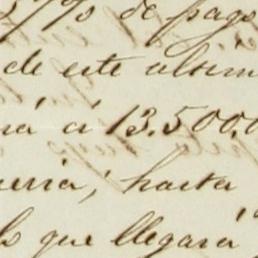 de pago
de este ultim
rá á 13.500.0
ueria; hasta
que llegará